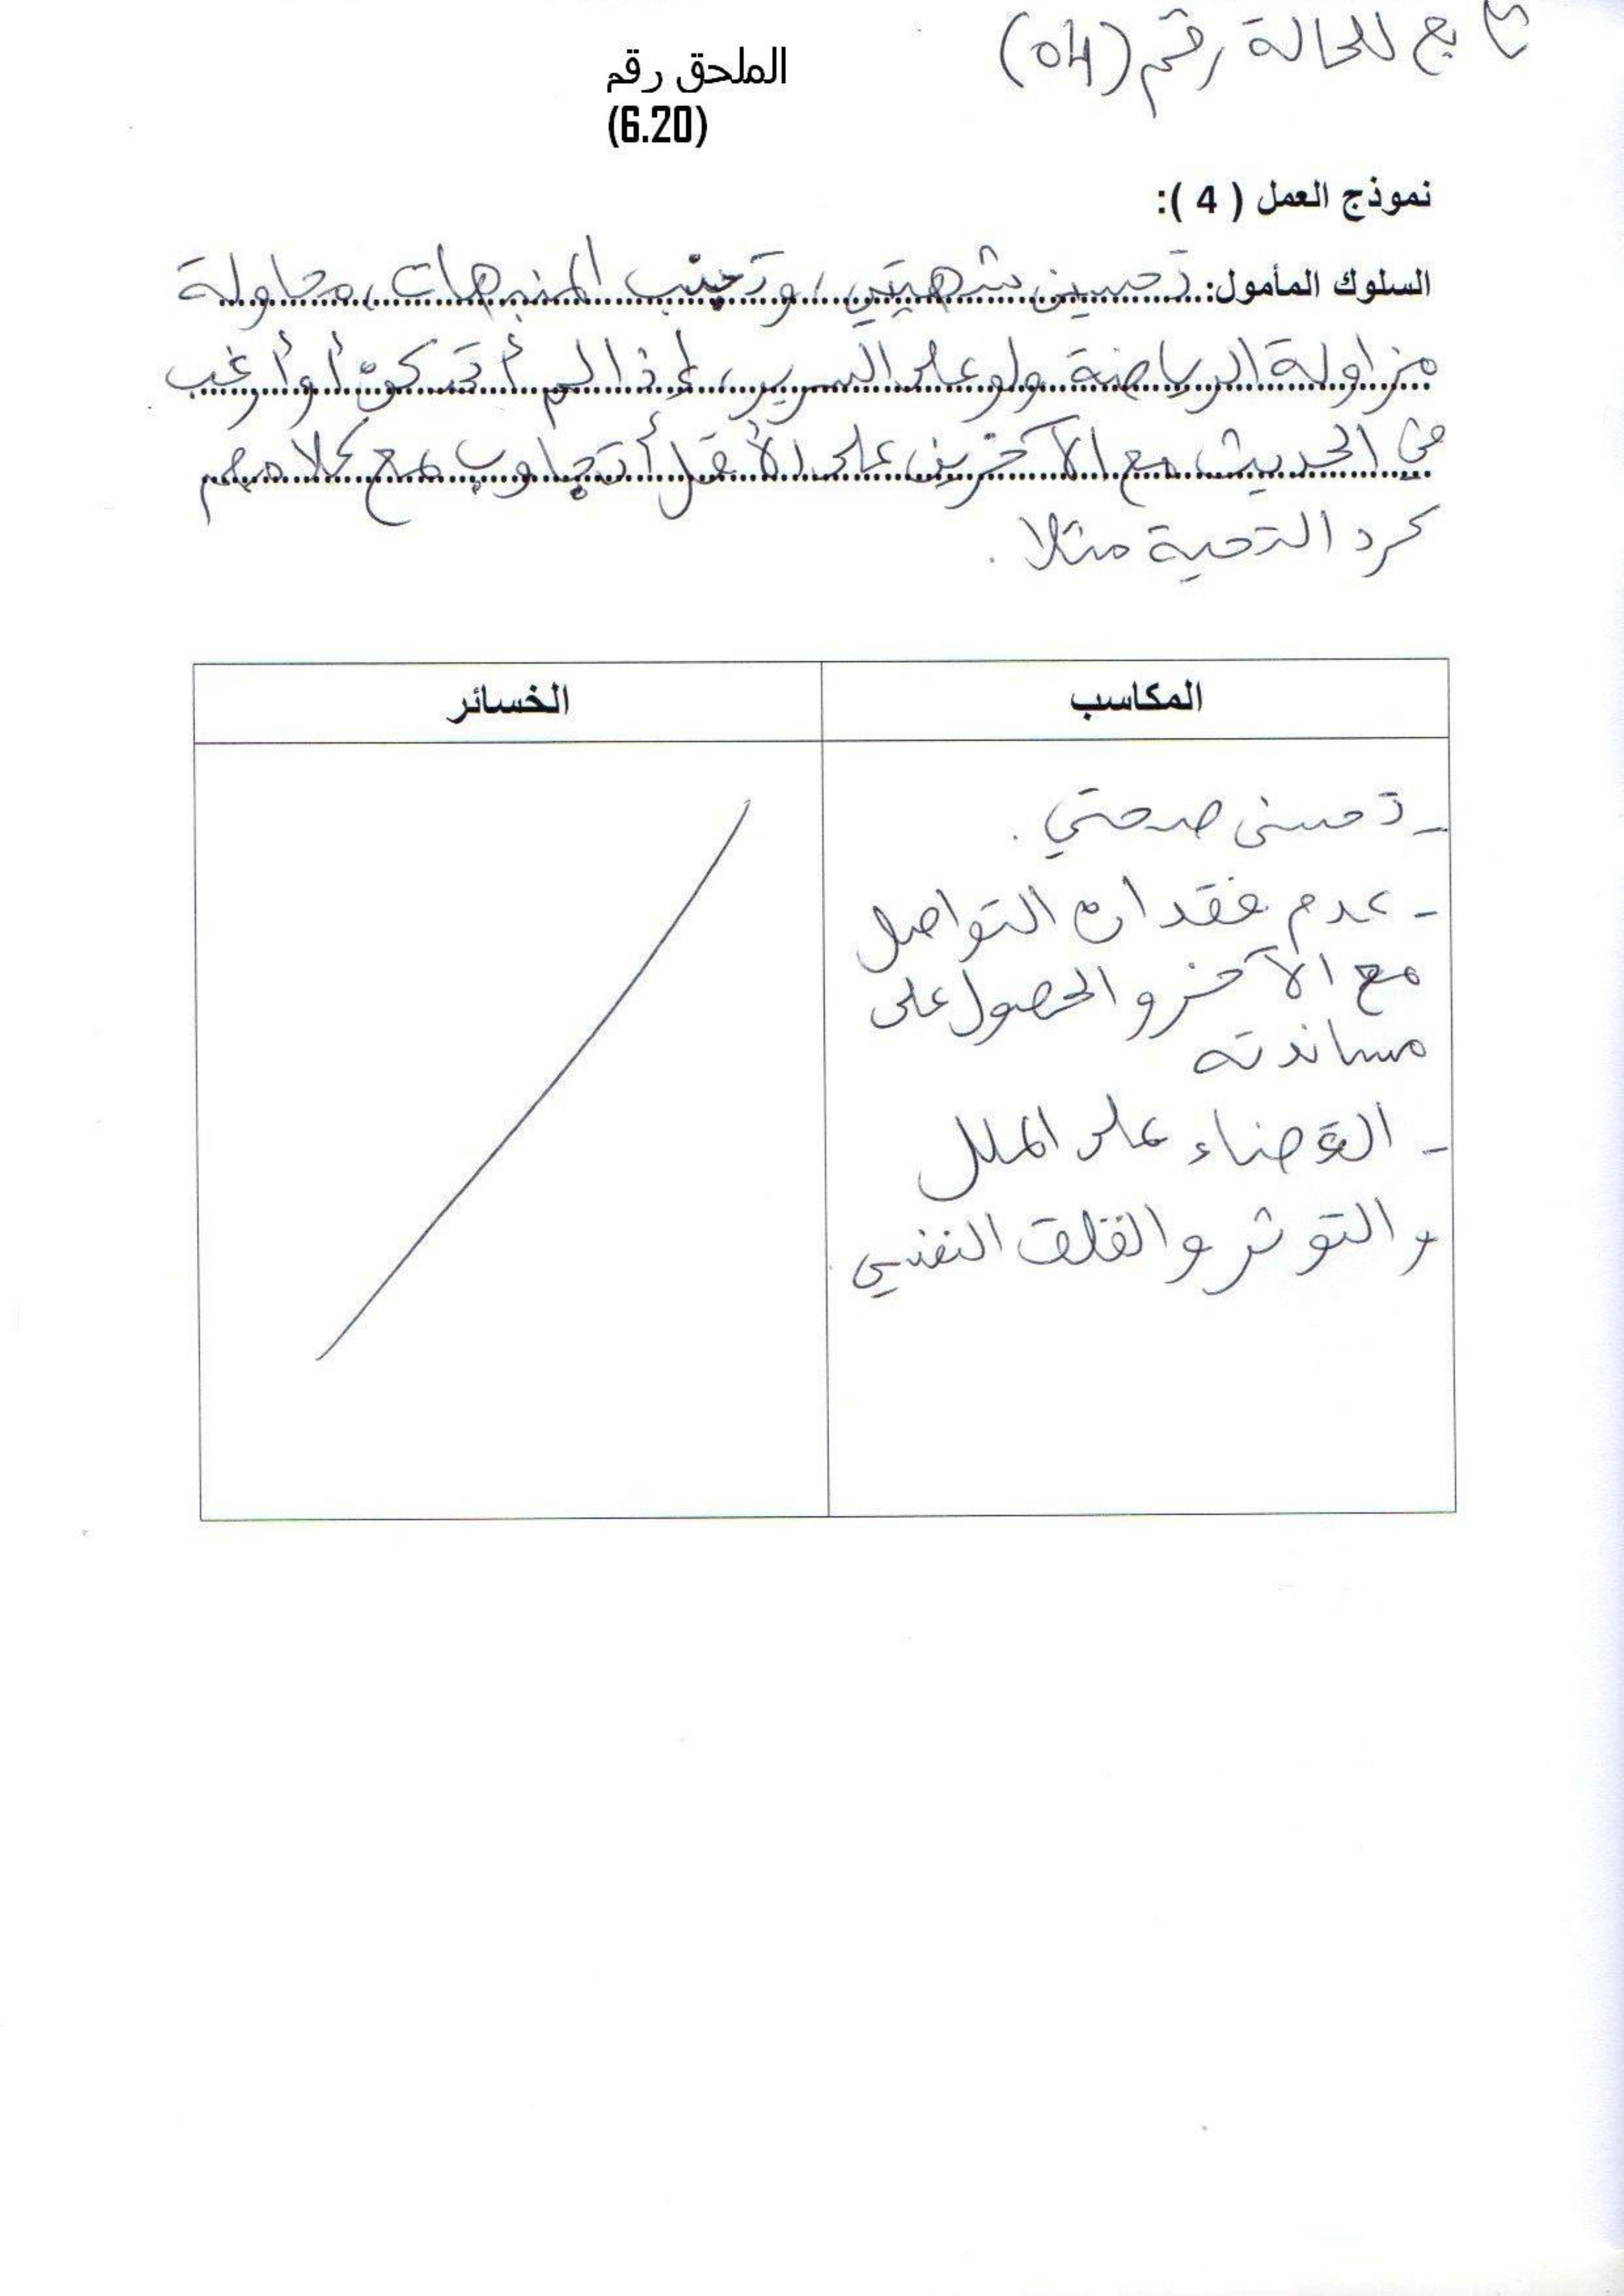 تابع للحالة رقم (04)
الملحق رقم
(6.20)
نموذج العمل ( 4 ):
السلوك المأمول: تحسين شهيتي، وتجنب المنبهات، محاولة
مزاولة الرياضة ولو على السرير، إذا لم أتمكن أو أرغب
في الحديث مع الآخرين على الأقل أتجاوب مع كلامهم
كرد التحية مثلا .
المكاسب
الخسائر
- تحسن صحتي .
- عدم فقدان التواصل
مع الآخر والحصول على
مساندته
- القضاء على الملل
والتوثر والقلق النفسي